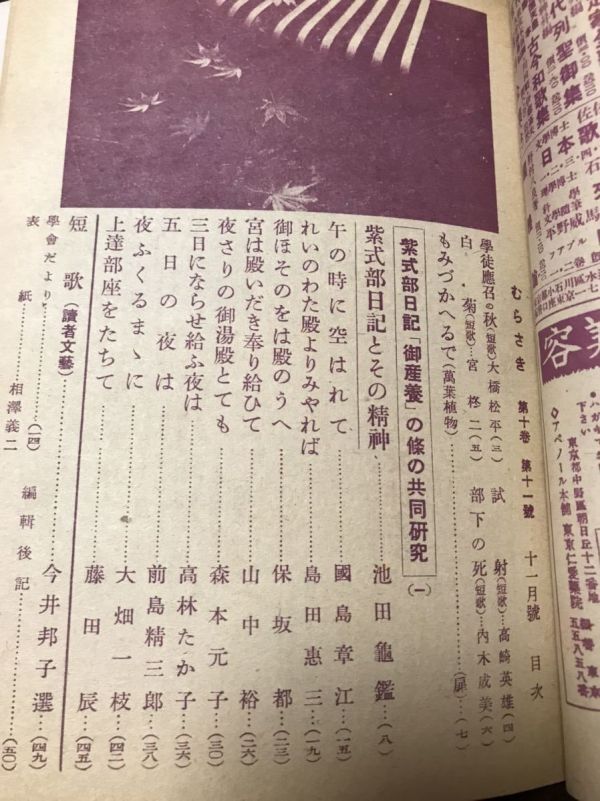 むらさき 第十卷 第十一號 十一月號 目次
學徒應召の秋(短歌)大橋松平(三)
試射(短歌)高崎英雄(四)
白・菊(短歌)宮柊二(五)
部下の死(短歌)內木成美(六)
もみづかへるで(萬葉植物)……(扉)…(七)
紫式部日記「御産養」の條の共同研究(一)
紫式部日記とその精神……池田龜鑑…(八)
午の時に空はれて……國島章江…(一五)
れいのわた殿よりみやれば……島田惠三…(一九)
御ほそのをは殿のうへ……保坂都…(二三)
宮は殿いだき奉り給ひて……山中裕…(二六)
夜さりの御湯殿とても……森本元子…(三〇)
三日にならせ給ふ夜は……高林たか子…(三六)
五日の夜は……前島精三郎…(三八)
夜ふくるまゝに……大畑一枝…(四二)
上達部座をたちて……藤田辰…(四五)
短歌(讀者文藝)……今井邦子選…(四九)
學會だより……(一四)
編輯後記……(五〇)
表紙……相澤義二
代列聖御集
古今和歌集
文學博士
日本歌
學
平野威馬
美容
ハガキ
下さい
◇アペノール本舖
東京都中野區朝日丘十二番地
東京仁愛藥院